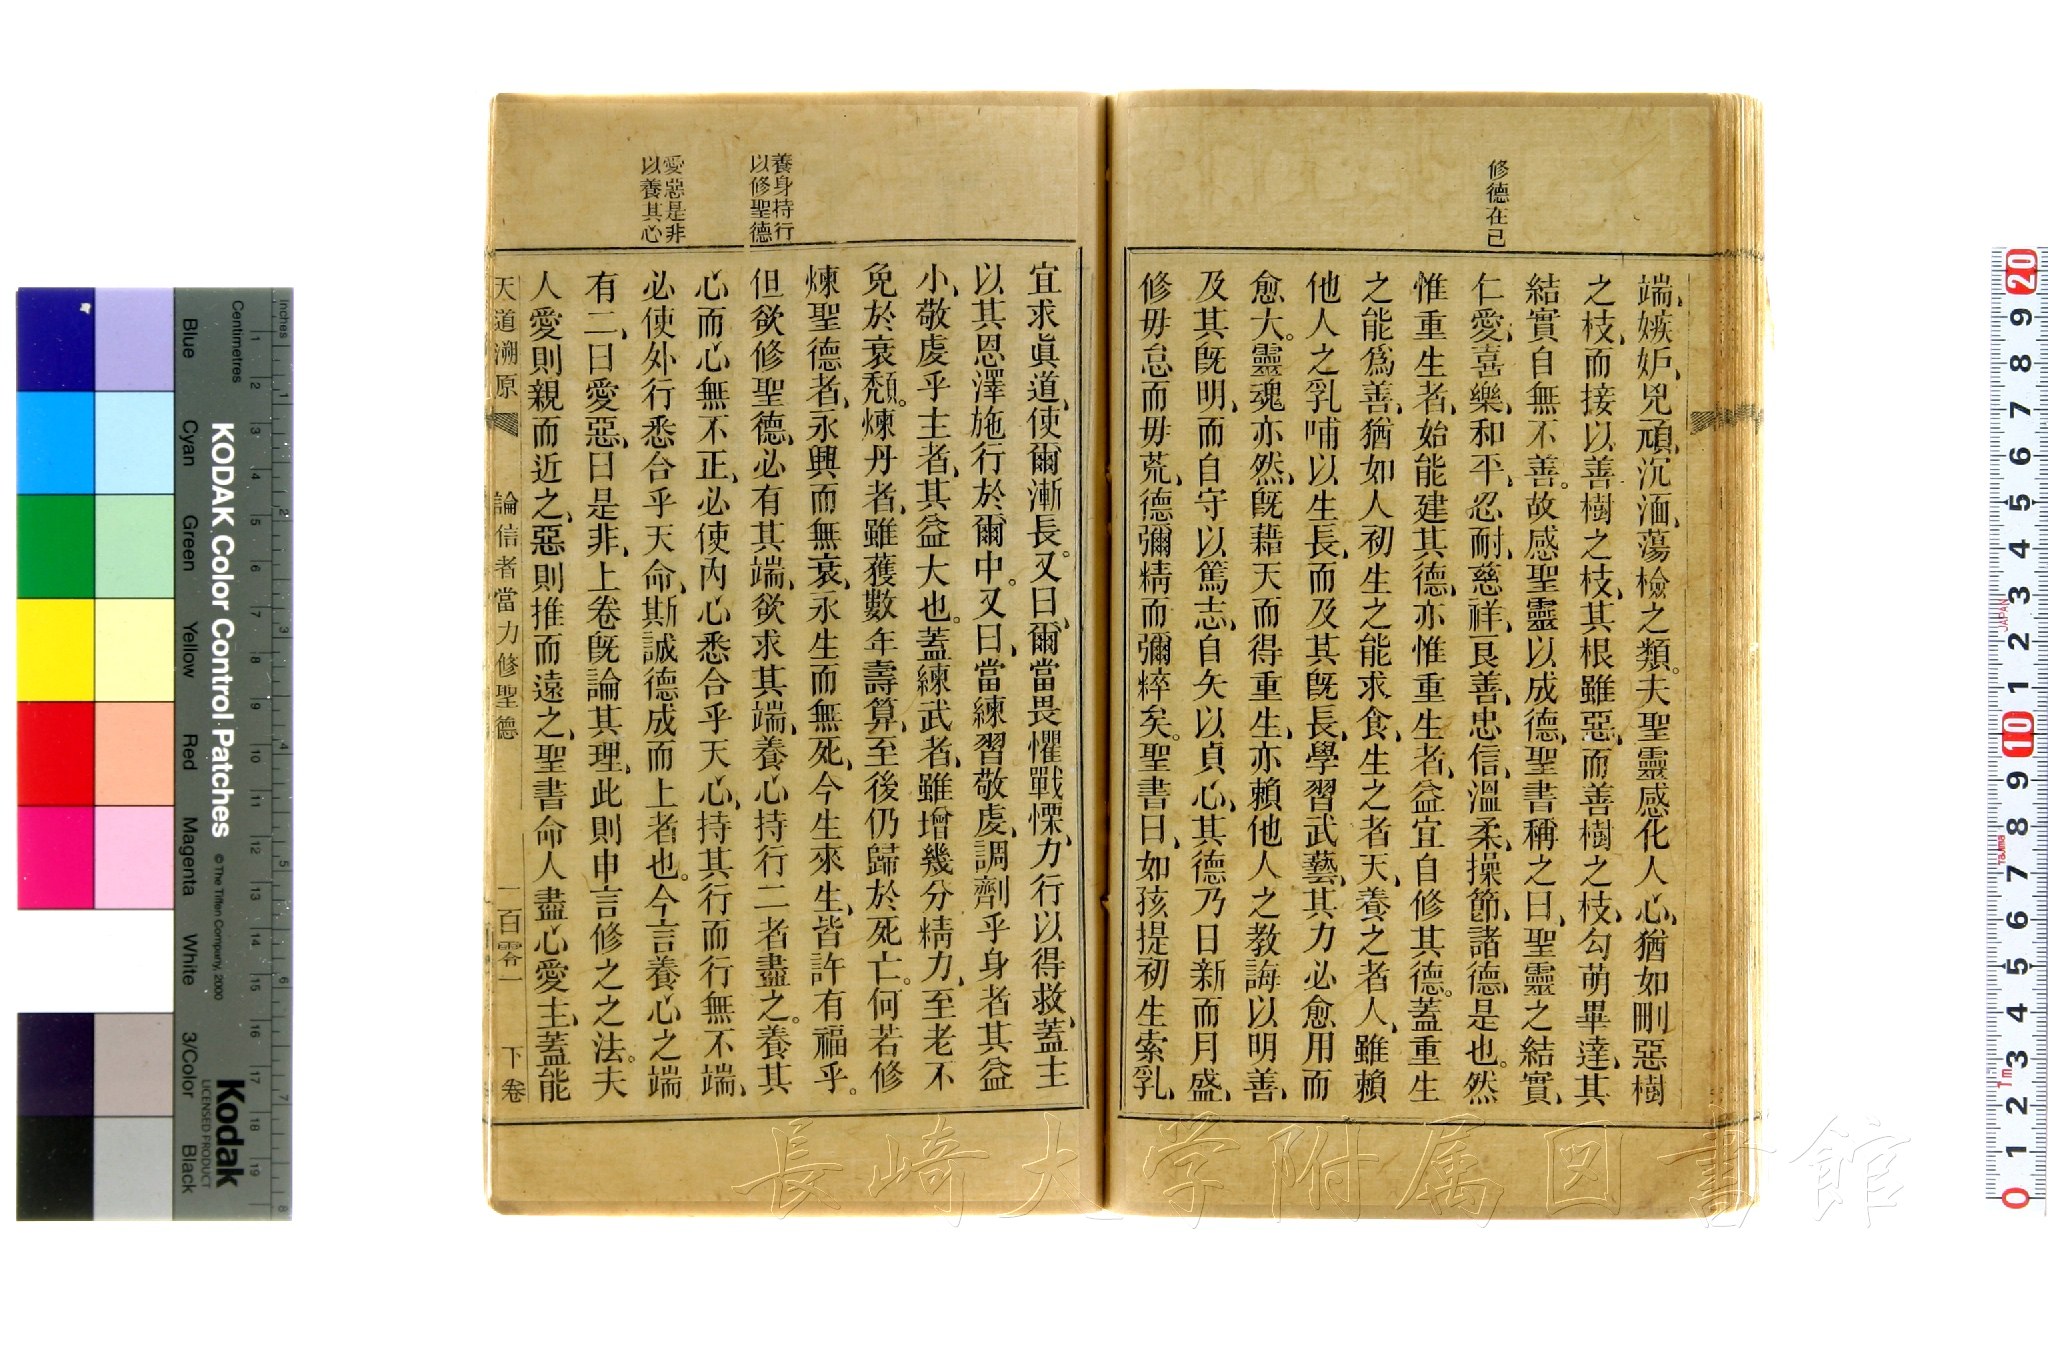 修德在己
端、嫉妒、兇頑、沉湎、蕩檢之類。夫聖靈感化人心、猶如刪惡樹
之枝、而接以善樹之枝、其根雖惡、而善樹之枝、勾萌畢達、其
結實自無不善。故感聖靈以成德、聖書稱之曰、聖靈之結實、
仁愛、喜樂、和平、忍耐、慈祥、良善、忠信、溫柔、操節、諸德、是也。然
惟重生者、始能建其德、亦惟重生者、益宜自修其德。蓋重生
之能爲善、猶如人初生之能求食、生之者天、養之者人、雖賴
他人之乳哺以生長、而及其旣長、學習武藝、其力必愈用而
愈大。靈魂亦然、旣藉天而得重生、亦賴他人之教誨以明善、
及其旣明、而自守以篤志、自矢以貞心、其德乃日新而月盛、
修毋怠而毋荒、德彌精而彌粹矣。聖書曰、如孩提初生索乳、
養身持行
以修聖德
愛惡是非
以養其心
宜求眞道、使爾漸長。又曰、爾當畏懼戰慄、力行以得救、蓋主
以其恩澤施行於爾中。又曰、當練習敬虔、調劑乎身者其益
小、敬虔乎主者、其益大也。蓋練武者、雖增幾分精力、至老不
免於衰頹。煉丹者、雖獲數年壽算、至後仍歸於死亡。何若修
煉聖德者、永興而無衰、永生而無死、今生來生、皆許有福乎。
但欲修聖德、必有其端、欲求其端、養心持行二者盡之。養其
心而心無不正、必使內心悉合乎天心、持其行而行無不端、
必使外行悉合乎天命、斯誠德成而上者也。今言養心之端
有二、曰愛惡、曰是非、上卷旣論其理、此則申言修之之法。夫
人愛則親而近之、惡則推而遠之、聖書命人盡心愛主、蓋能
天道溯原 論信者當力修聖德 一百零一 下卷
KODAK Color Control Patches
© The Tiffen Company, 2000
Kodak
LICENSED PRODUCT
Blue Cyan Green Yellow Red Magenta White 3/Color Black
Inches
Centimetres
1 2 3 4 5 6 7 8 9 10 11 12 13 14 15 16 17 18 19
1 2 3 4 5 6 7 8
20 9 8 7 6 5 4 3 2 1 10 9 8 7 6 5 4 3 2 1 0
JAPAN
Tajima
7m
長崎大学附属図書館